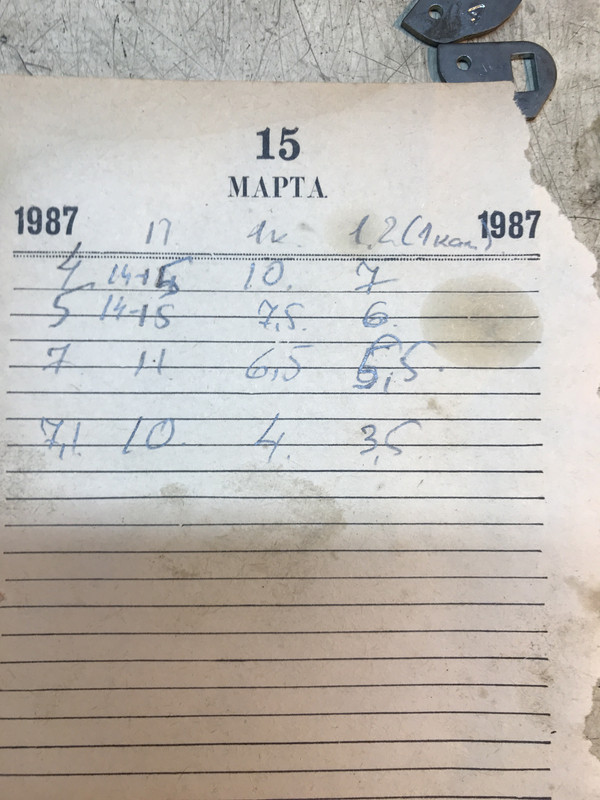 15
МАРТА
1987 1987
П 1к. 1,2 (1кат)
4 14-15 10. 7
5 14-15 7,5. 6.
7 11 6,5 5,5.
7,1 10. 4. 3,5